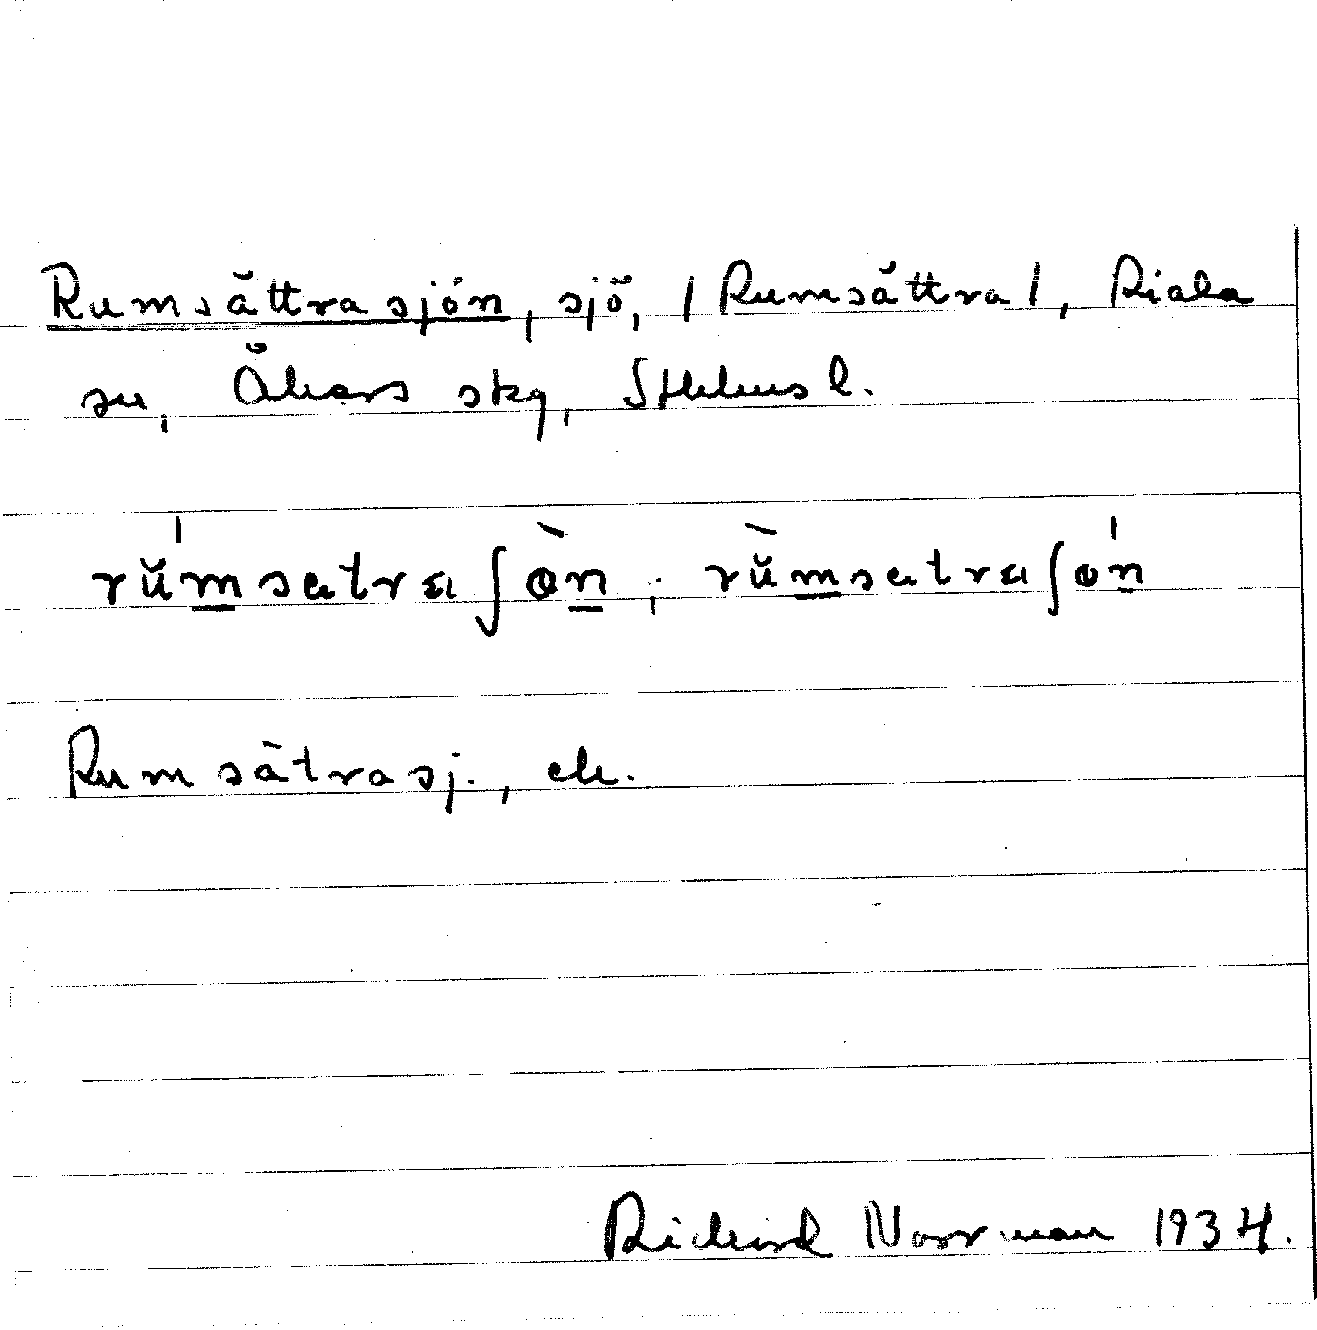 Rumsättrasjön, sjö, /Rumsättra/, Riala
sn, Åkers skg, Sthlms l.
rŭ́msatraʃɵ̀n ; rŭ̀msatraʃɵ́n
Rumsätrasj., ek.
Richard Norrman 1934.